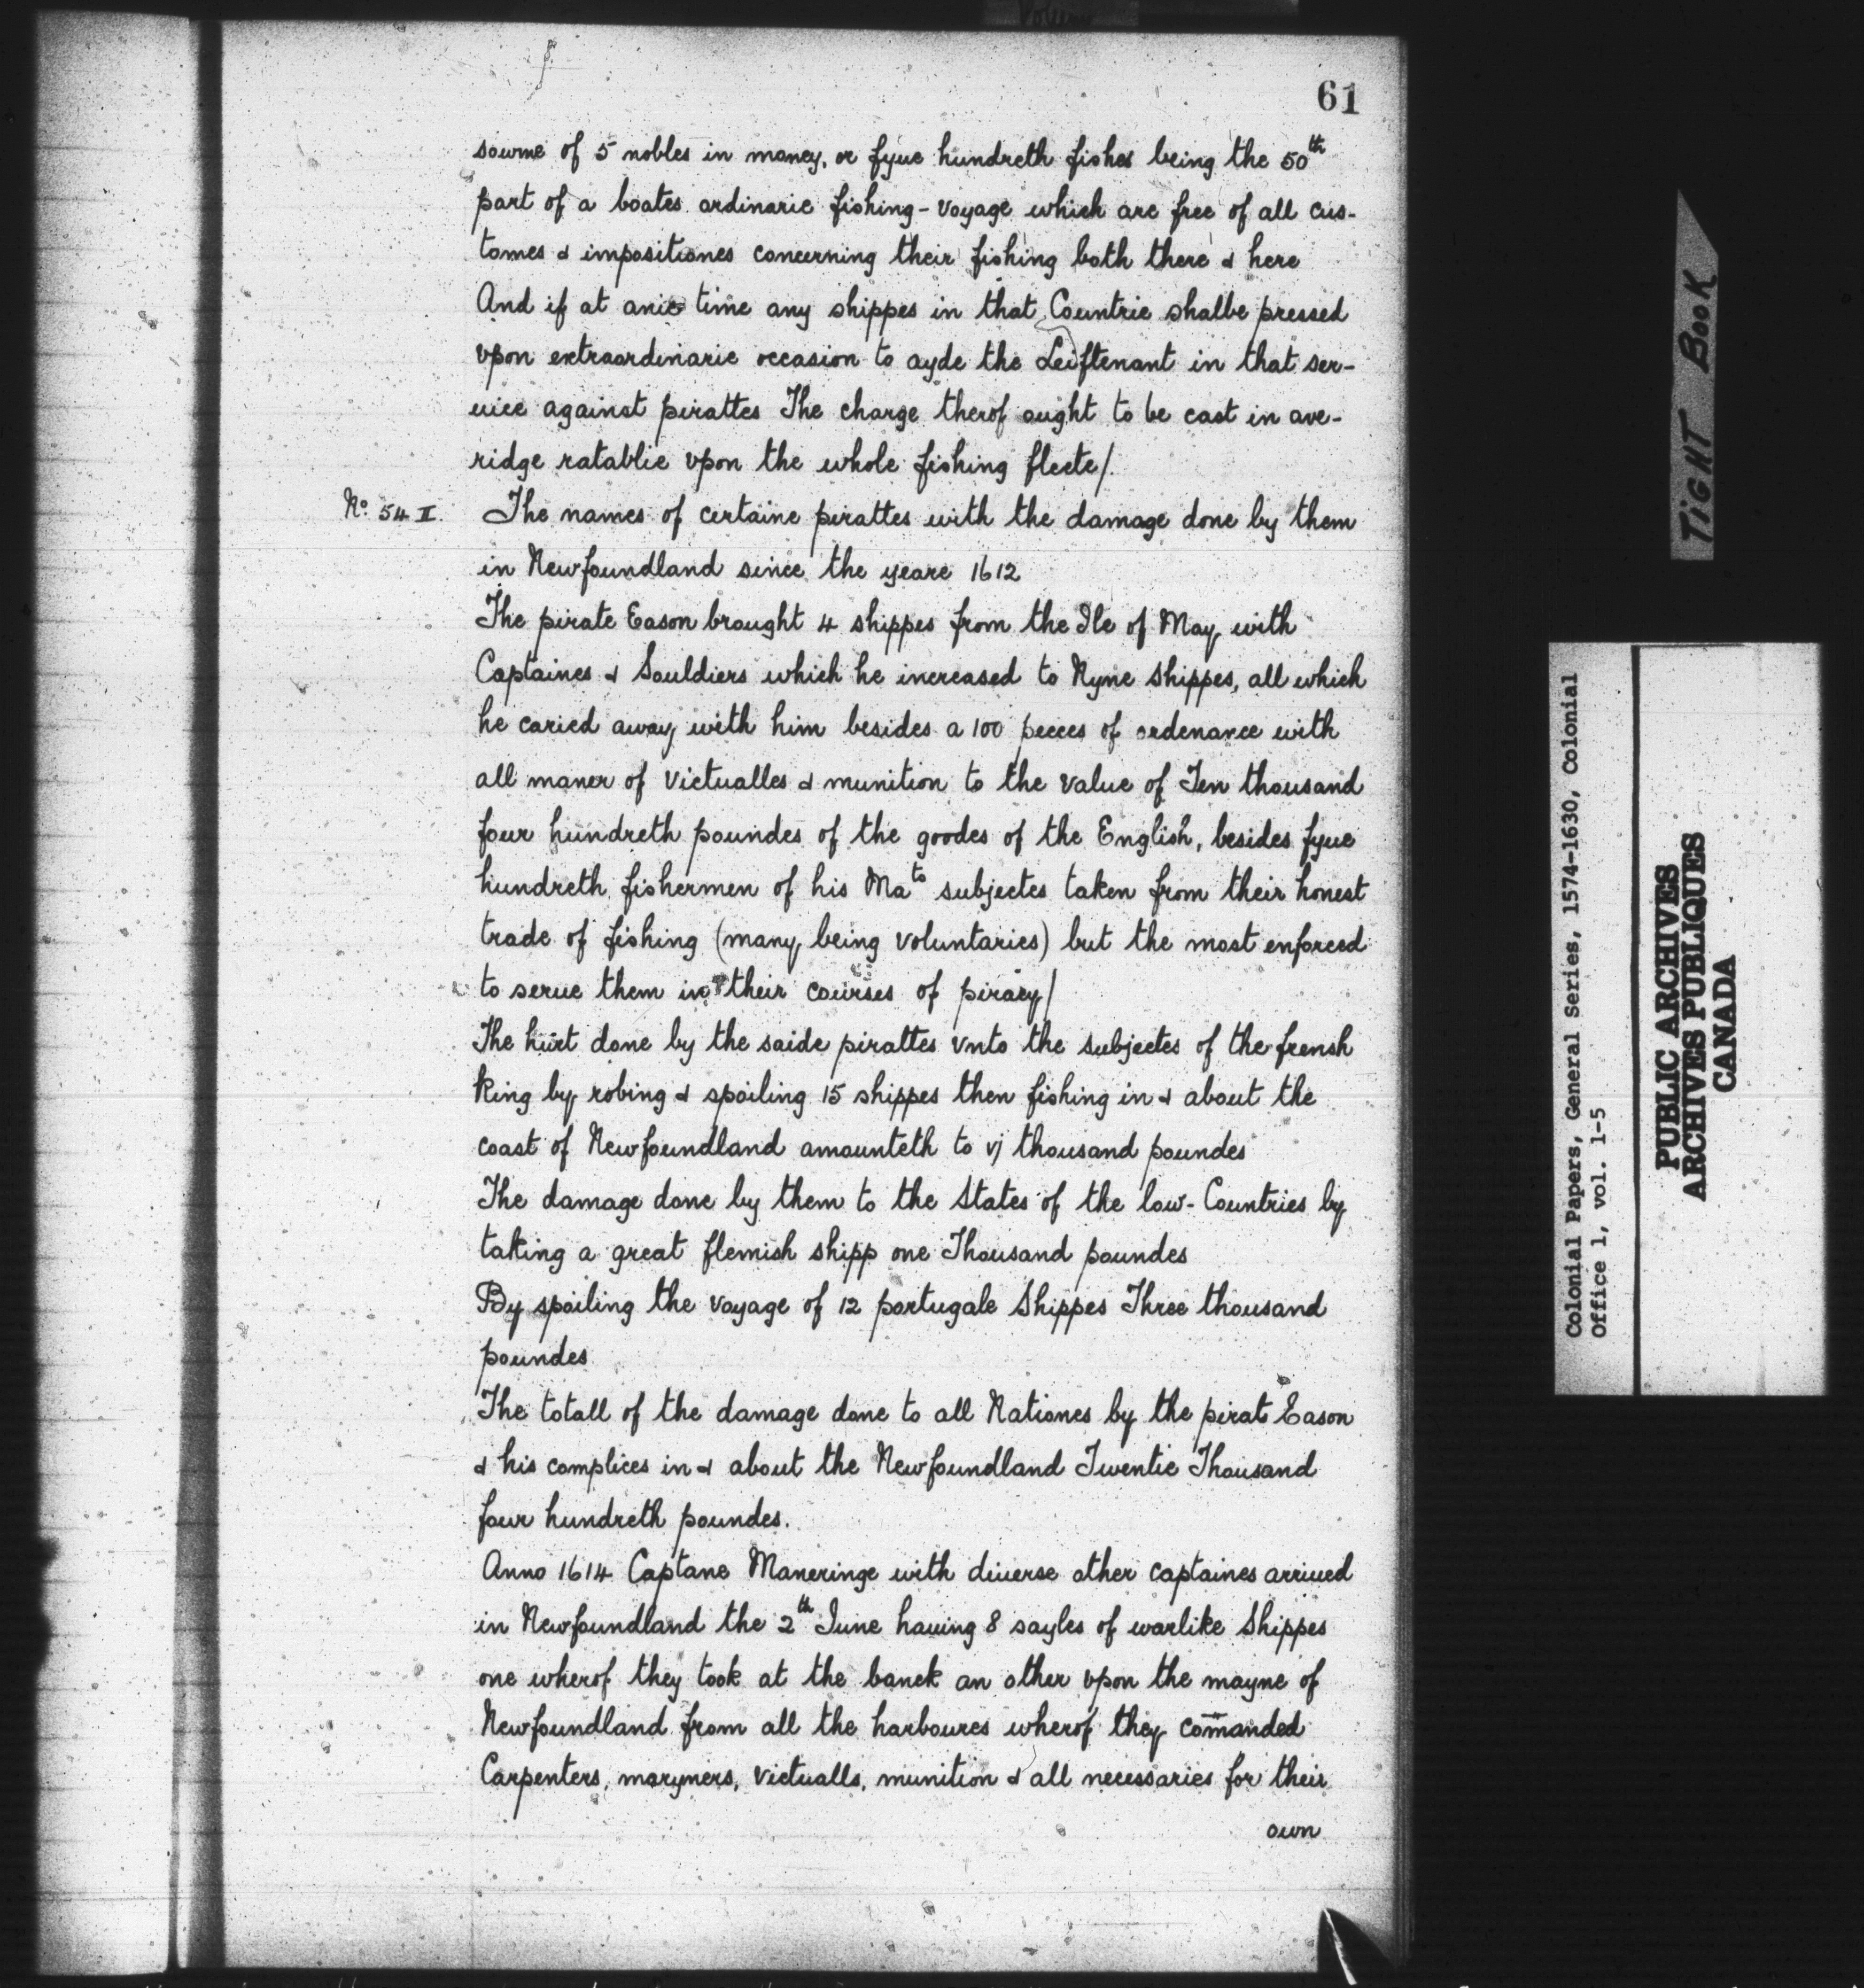 61
sowme of 5 nobles in money, or fyue hundreth fishes being the 50th
part of a boates ordinarie fishing-voyage which are free of all cus-
tomes & impositiones concerning their fishing both there & here
And if at anie time any shippes in that Countrie shalbe pressed
vpon extraordinarie occasion to ayde the Leiftenant in that ser-
uice against pirattes The charge therof ought to be cast in ave-
ridge ratablie vpon the whole fishing fleete/.
No. 54 II. The names of certaine pirattes with the damage done by them
in Newfoundland since the yeare 1612
The pirate Eason brought 4 shippes from the Ile of May with
Captaines & Souldiers which he increased to Nyne Shippes, all which
he caried away with him besides a 100 peeces of ordenance with
all maner of victualles & munition to the value of Ten thousand
four hundreth poundes of the goodes of the English, besides fyue
hundreth fishermen of his Mats subjectes taken from their honest
trade of fishing (many being voluntaries) but the most enforced
to serue them in their courses of piracy/
The hurt done by the saide pirattes vnto the subjectes of the frensh
King by robing & spoiling 15 shippes then fishing in & about the
coast of Newfoundland amounteth to vj thousand poundes
The damage done by them to the States of the low-Countries by
taking a great flemish shipp one Thousand poundes
By spoiling the voyage of 12 portugale Shippes Three thousand
poundes
The totall of the damage done to all Nationes by the pirate Eason
& his complices in & about the Newfoundland Twentie Thousand
four hundreth poundes.
Anno 1614 Captane Maneringe with diuerse other captaines arriued
in Newfoundland the 2th June hauing 8 sayles of warlike Shippes
one wherof they took at the banck an other vpon the mayne of
Newfoundland from all the harboures wherof they com̄anded
Carpenters, maryners, victualls, munition & all necessaries for their
own
TIGHT BOOK
Colonial Papers, General Series, 1574-1630, Colonial
Office 1, vol. 1-5
PUBLIC ARCHIVES
ARCHIVES PUBLIQUES
CANADA